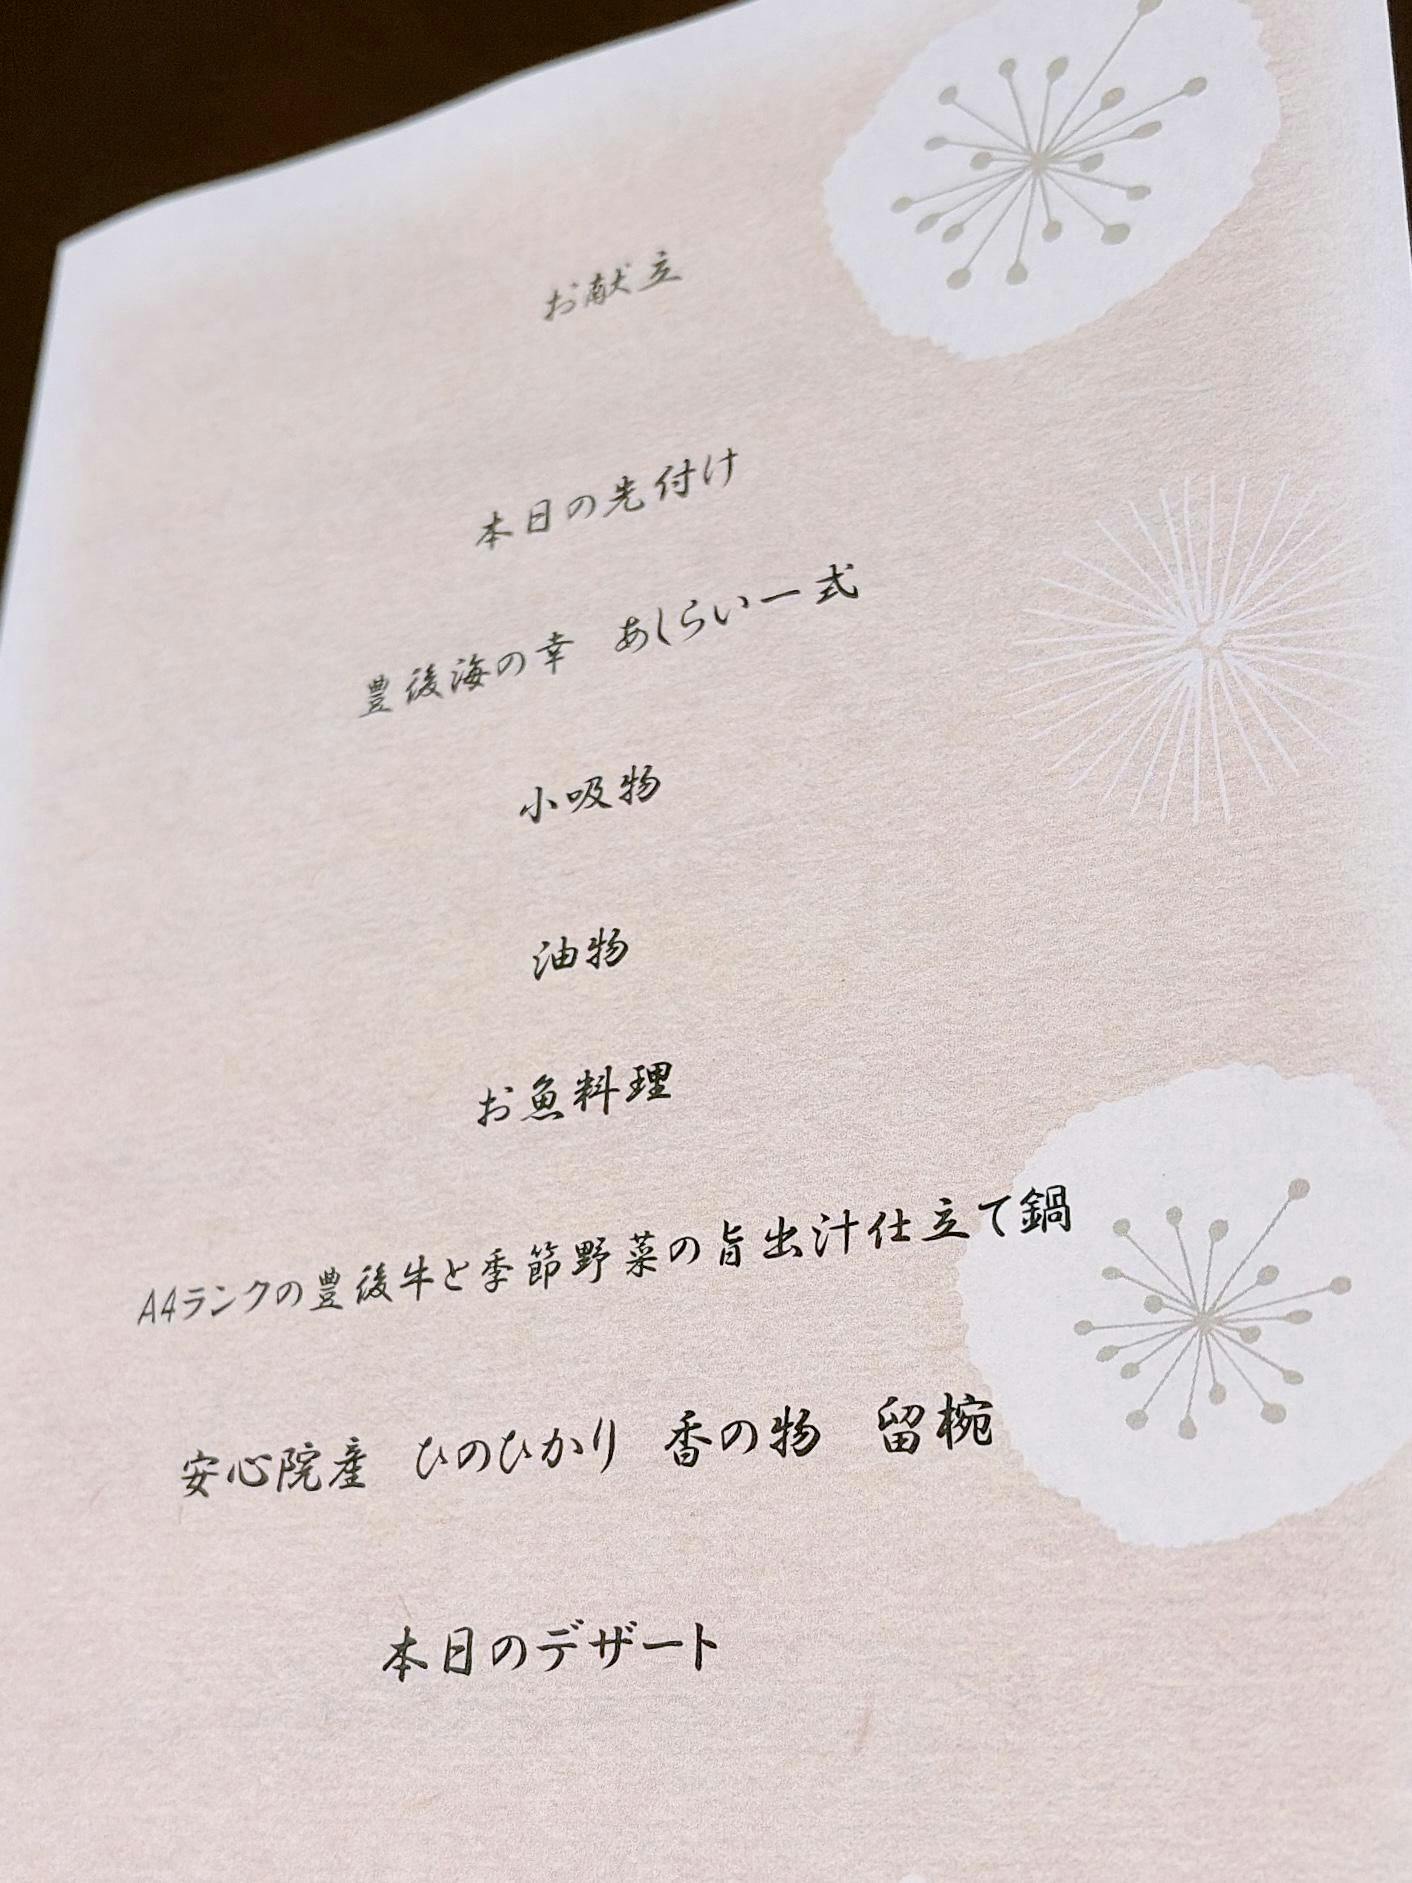 お献立
本日の先付け
豊後海の幸　あしらい一式
小吸物
油物
お魚料理
A4ランクの豊後牛と季節野菜の旨出汁仕立て鍋
安心院産　ひのひかり　香の物　留椀
本日のデザート